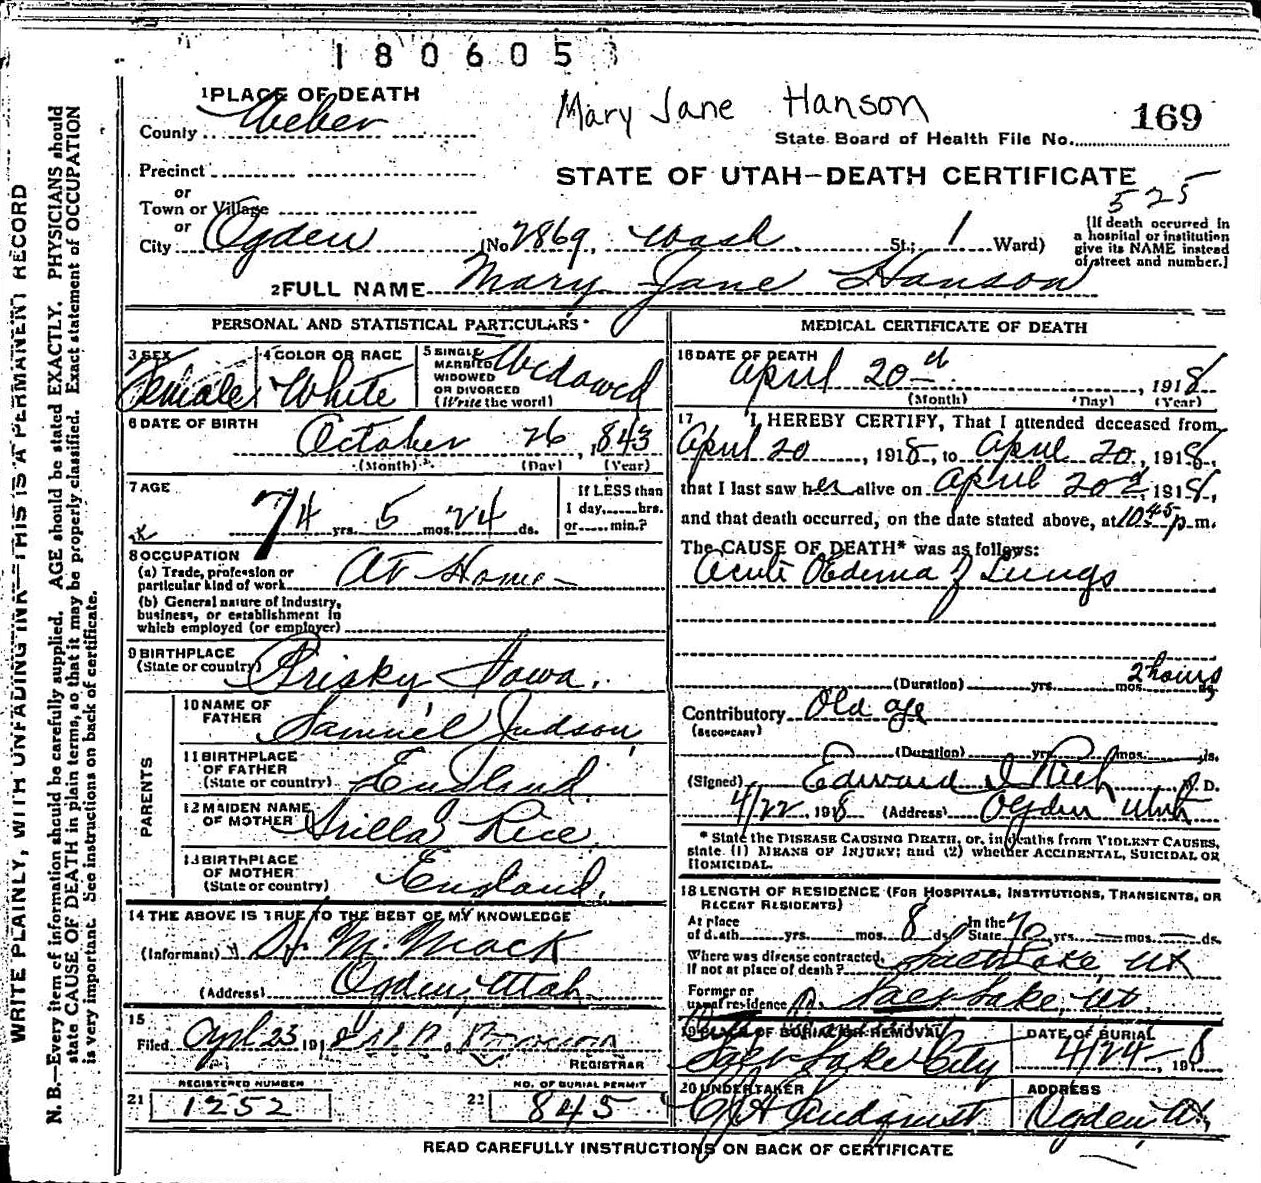 180605
1 PLACE OF DEATH
Mary Jane Hanson
169
County Weber
State Board of Health File No.
Precinct
STATE OF UTAH—DEATH CERTIFICATE
or
Town or Village
525
or
City Ogden (No. 2869, Wash. St.; 1 Ward)
[If death occurred in a hospital or institution give its NAME instead of street and number.]
2 FULL NAME Mary Jane Hanson
PERSONAL AND STATISTICAL PARTICULARS
3 SEX Female
4 COLOR OR RACE White
5 SINGLE MARRIED WIDOWED OR DIVORCED (Write the word) Widowed
6 DATE OF BIRTH October 26, 1843
(Month) (Day) (Year)
7 AGE 74 yrs. 5 mos. 24 ds.
If LESS than 1 day, hrs. or min.?
8 OCCUPATION
(a) Trade, profession or particular kind of work At Home
(b) General nature of industry, business, or establishment in which employed (or employer)
9 BIRTHPLACE (State or country) Prisky Iowa.
PARENTS
10 NAME OF FATHER Samuel Judson
11 BIRTHPLACE OF FATHER (State or country) England
12 MAIDEN NAME OF MOTHER Rice
13 BIRTHPLACE OF MOTHER (State or country) England.
14 THE ABOVE IS TRUE TO THE BEST OF MY KNOWLEDGE
(Informant) H. M. Mack
(Address) Ogden, Utah
15
Filed Apl 23 191
REGISTRAR
REGISTERED NUMBER
21 1252
NO. OF BURIAL PERMIT
22 845
MEDICAL CERTIFICATE OF DEATH
16 DATE OF DEATH April 20th, 1918
(Month) (Day) (Year)
17 I HEREBY CERTIFY, That I attended deceased from
April 20, 1918, to April 20, 1918,
that I last saw her alive on April 20th, 1918,
and that death occurred, on the date stated above, at 10 45 p m.
The CAUSE OF DEATH* was as follows:
Acute Oedema of Lungs
(Duration) yrs. mos. 2 hours ds.
Contributory Old age
(SECONDARY)
(Duration) yrs. mos. ds.
(Signed) Edward I Rich M. D.
4/22, 1918 (Address) Ogden Utah
* State the DISEASE CAUSING DEATH, or, in deaths from VIOLENT CAUSES,
state (1) MEANS OF INJURY; and (2) whether ACCIDENTAL, SUICIDAL OR
HOMICIDAL.
18 LENGTH OF RESIDENCE (FOR HOSPITALS, INSTITUTIONS, TRANSIENTS, OR
RECENT RESIDENTS)
At place of death yrs. mos. 8 ds. In the State 70 yrs. — mos. — ds.
Where was disease contracted, If not at place of death? Salt Lake, Ut
Former or usual residence Salt Lake, Ut
19 PLACE OF BURIAL OR REMOVAL Salt Lake City
DATE OF BURIAL 4/24—, 1918
20 UNDERTAKER Lindquist
ADDRESS Ogden, Ut.
READ CAREFULLY INSTRUCTIONS ON BACK OF CERTIFICATE
WRITE PLAINLY, WITH UNFADING INK—THIS IS A PERMANENT RECORD
N. B.—Every item of information should be carefully supplied. AGE should be stated EXACTLY. PHYSICIANS should
state CAUSE OF DEATH in plain terms, so that it may be properly classified. Exact statement of OCCUPATION
is very important. See instructions on back of certificate.